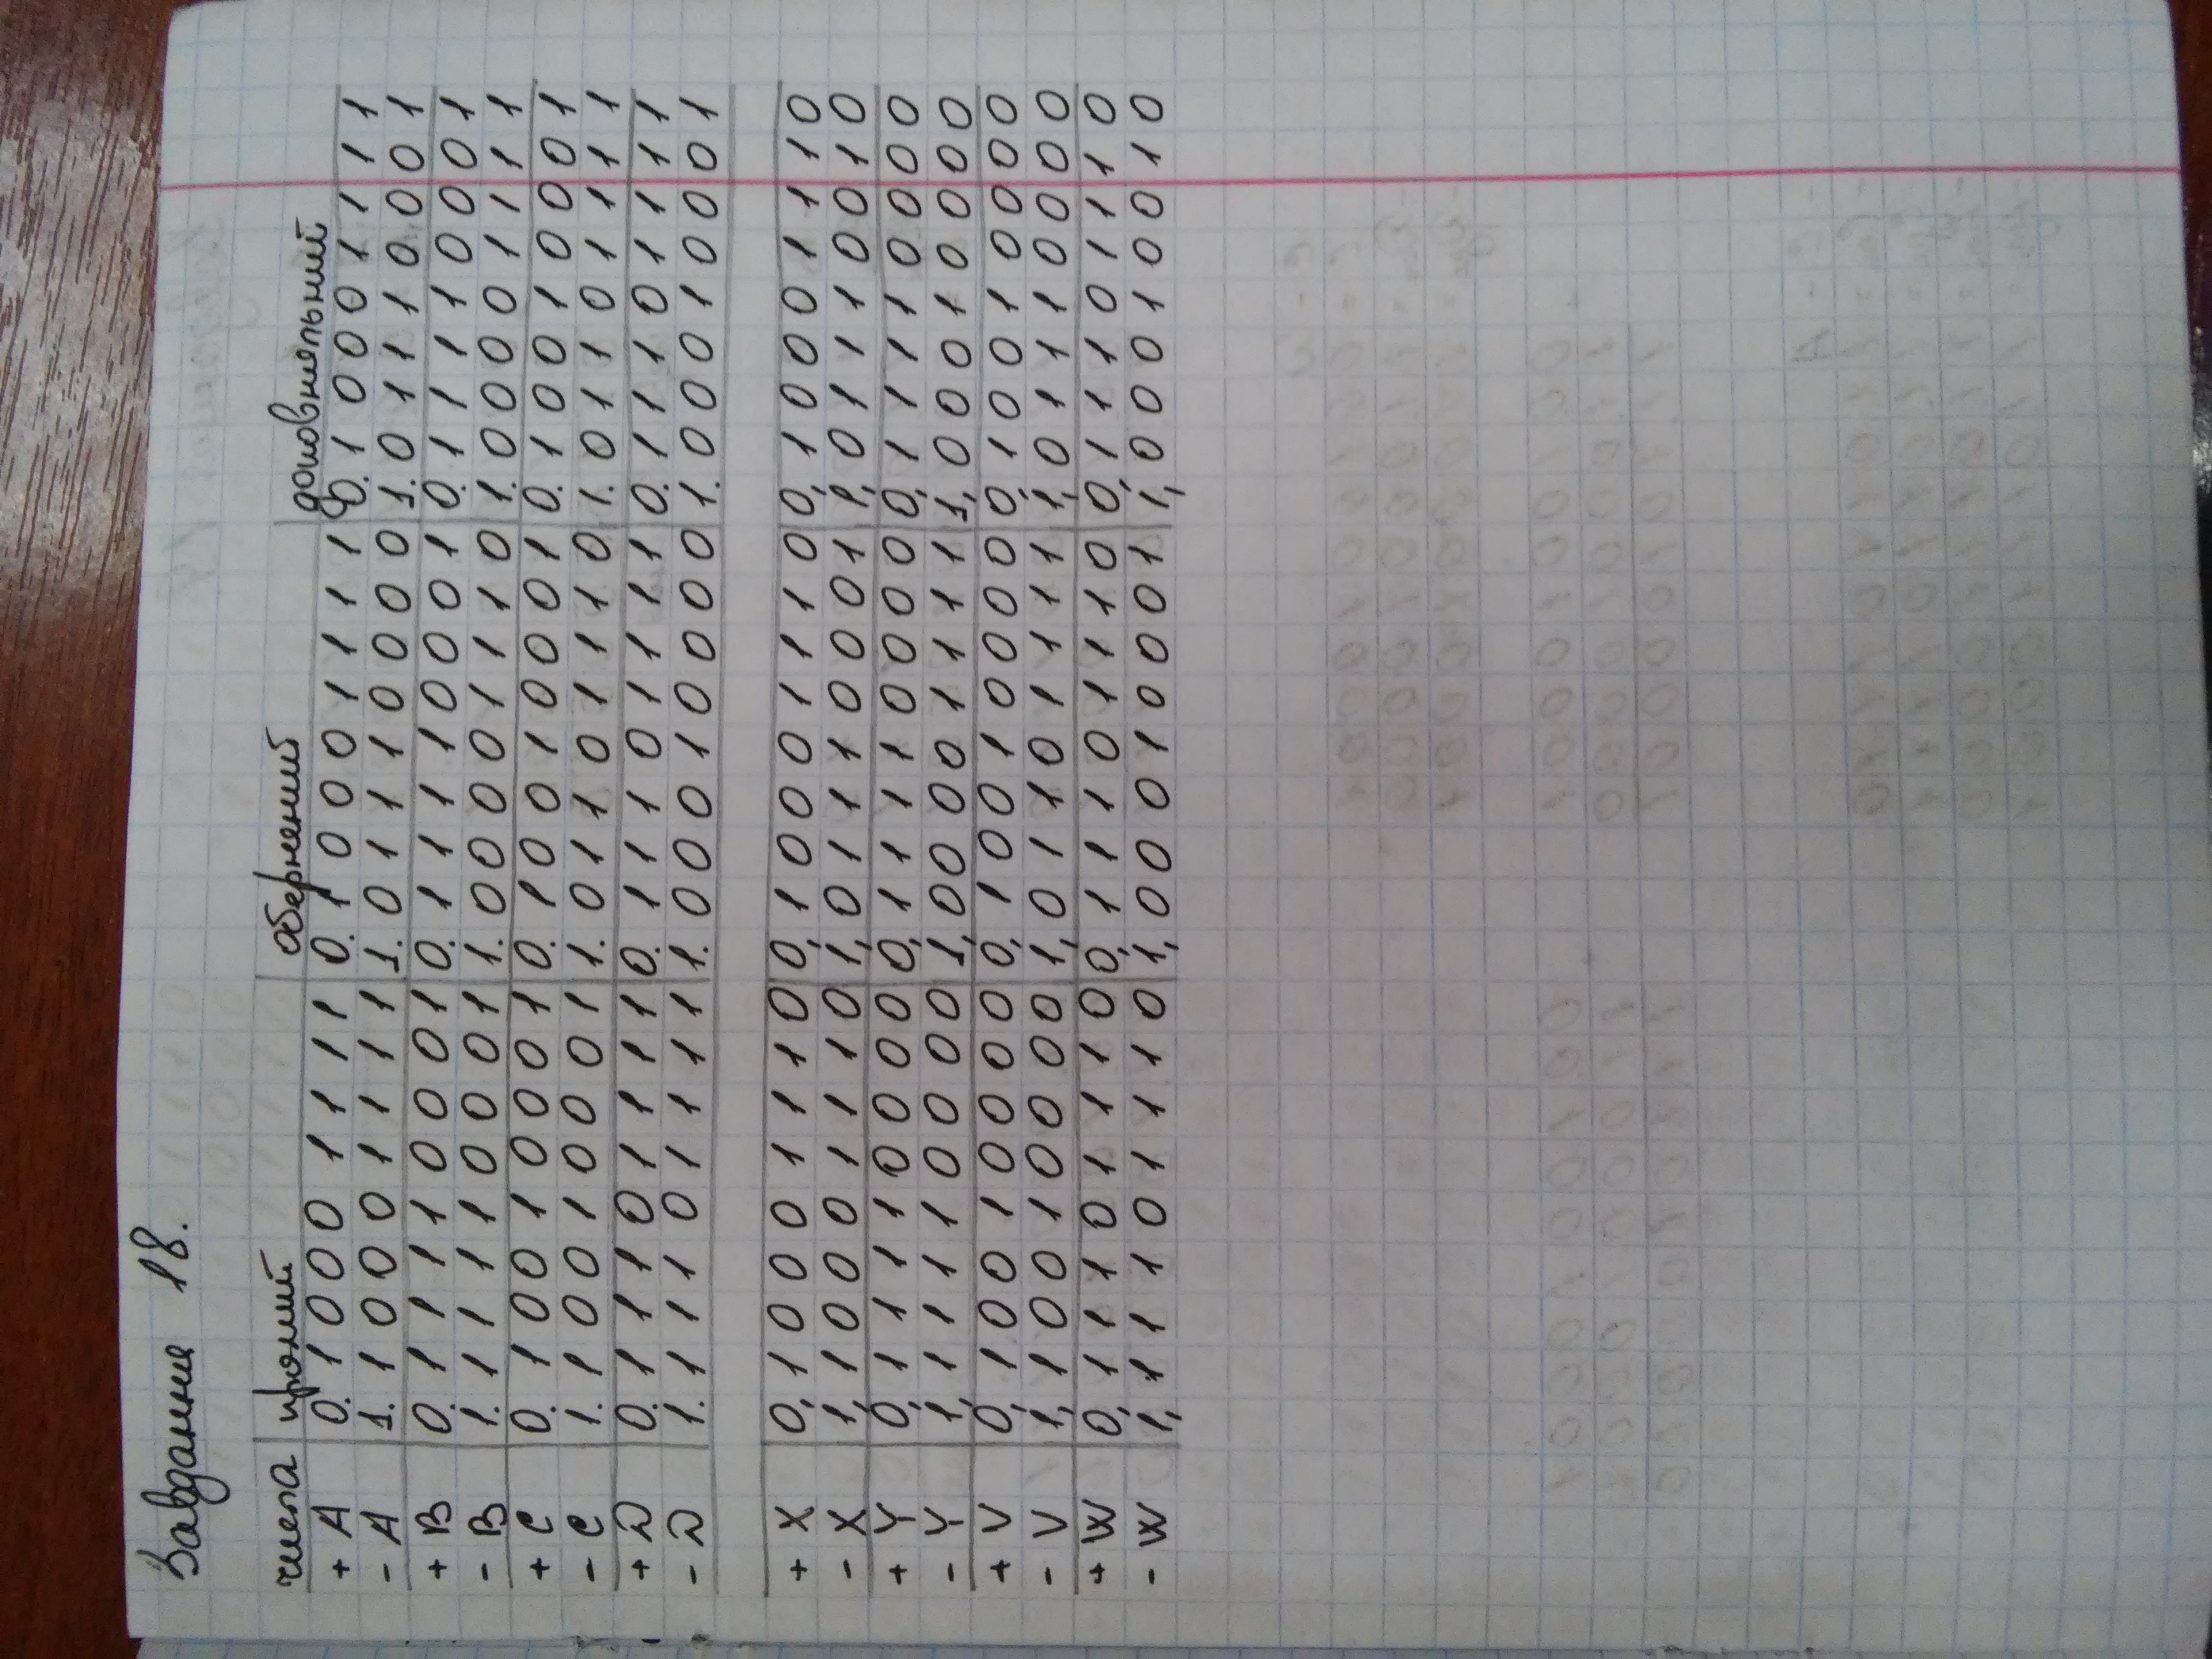 Завдання 18.
числа прямий обернений доповняльний
+ A 0. 1 0 0 0 1 1 1 1 0. 1 0 0 0 1 1 1 1 0. 1 0 0 0 1 1 1 1
- A 1. 1 0 0 0 1 1 1 1 1. 0 1 1 1 0 0 0 0 1. 0 1 1 1 0 0 0 1
+ B 0. 1 1 1 1 0 0 0 1 0. 1 1 1 1 0 0 0 1 0. 1 1 1 1 0 0 0 1
- B 1. 1 1 1 1 0 0 0 1 1. 0 0 0 0 1 1 1 0 1. 0 0 0 0 1 1 1 1
+ C 0. 1 0 0 1 0 0 0 1 0. 1 0 0 1 0 0 0 1 0. 1 0 0 1 0 0 0 1
- C 1. 1 0 0 1 0 0 0 1 1. 0 1 1 0 1 1 1 0 1. 0 1 1 0 1 1 1 1
+ D 0. 1 1 1 0 1 1 1 1 0. 1 1 1 0 1 1 1 1 0. 1 1 1 0 1 1 1 1
- D 1. 1 1 1 0 1 1 1 1 1. 0 0 0 1 0 0 0 0 1. 0 0 0 1 0 0 0 1
+ X 0, 1 0 0 0 1 1 1 0 0, 1 0 0 0 1 1 1 0 0, 1 0 0 0 1 1 1 0
- X 1, 1 0 0 0 1 1 1 0 1, 0 1 1 1 0 0 0 1 1, 0 1 1 1 0 0 1 0
+ Y 0, 1 1 1 1 0 0 0 0 0, 1 1 1 1 0 0 0 0 0, 1 1 1 1 0 0 0 0
- Y 1, 1 1 1 1 0 0 0 0 1, 0 0 0 0 1 1 1 1 1, 0 0 0 1 0 0 0 0
+ V 0, 1 0 0 1 0 0 0 0 0, 1 0 0 1 0 0 0 0 0, 1 0 0 1 0 0 0 0
- V 1, 1 0 0 1 0 0 0 0 1, 0 1 1 0 1 1 1 1 1, 0 1 1 1 0 0 0 0
+ W 0, 1 1 1 0 1 1 1 0 0, 1 1 1 0 1 1 1 0 0, 1 1 1 0 1 1 1 0
- W 1, 1 1 1 0 1 1 1 0 1, 0 0 0 1 0 0 0 1 1, 0 0 0 1 0 0 1 0